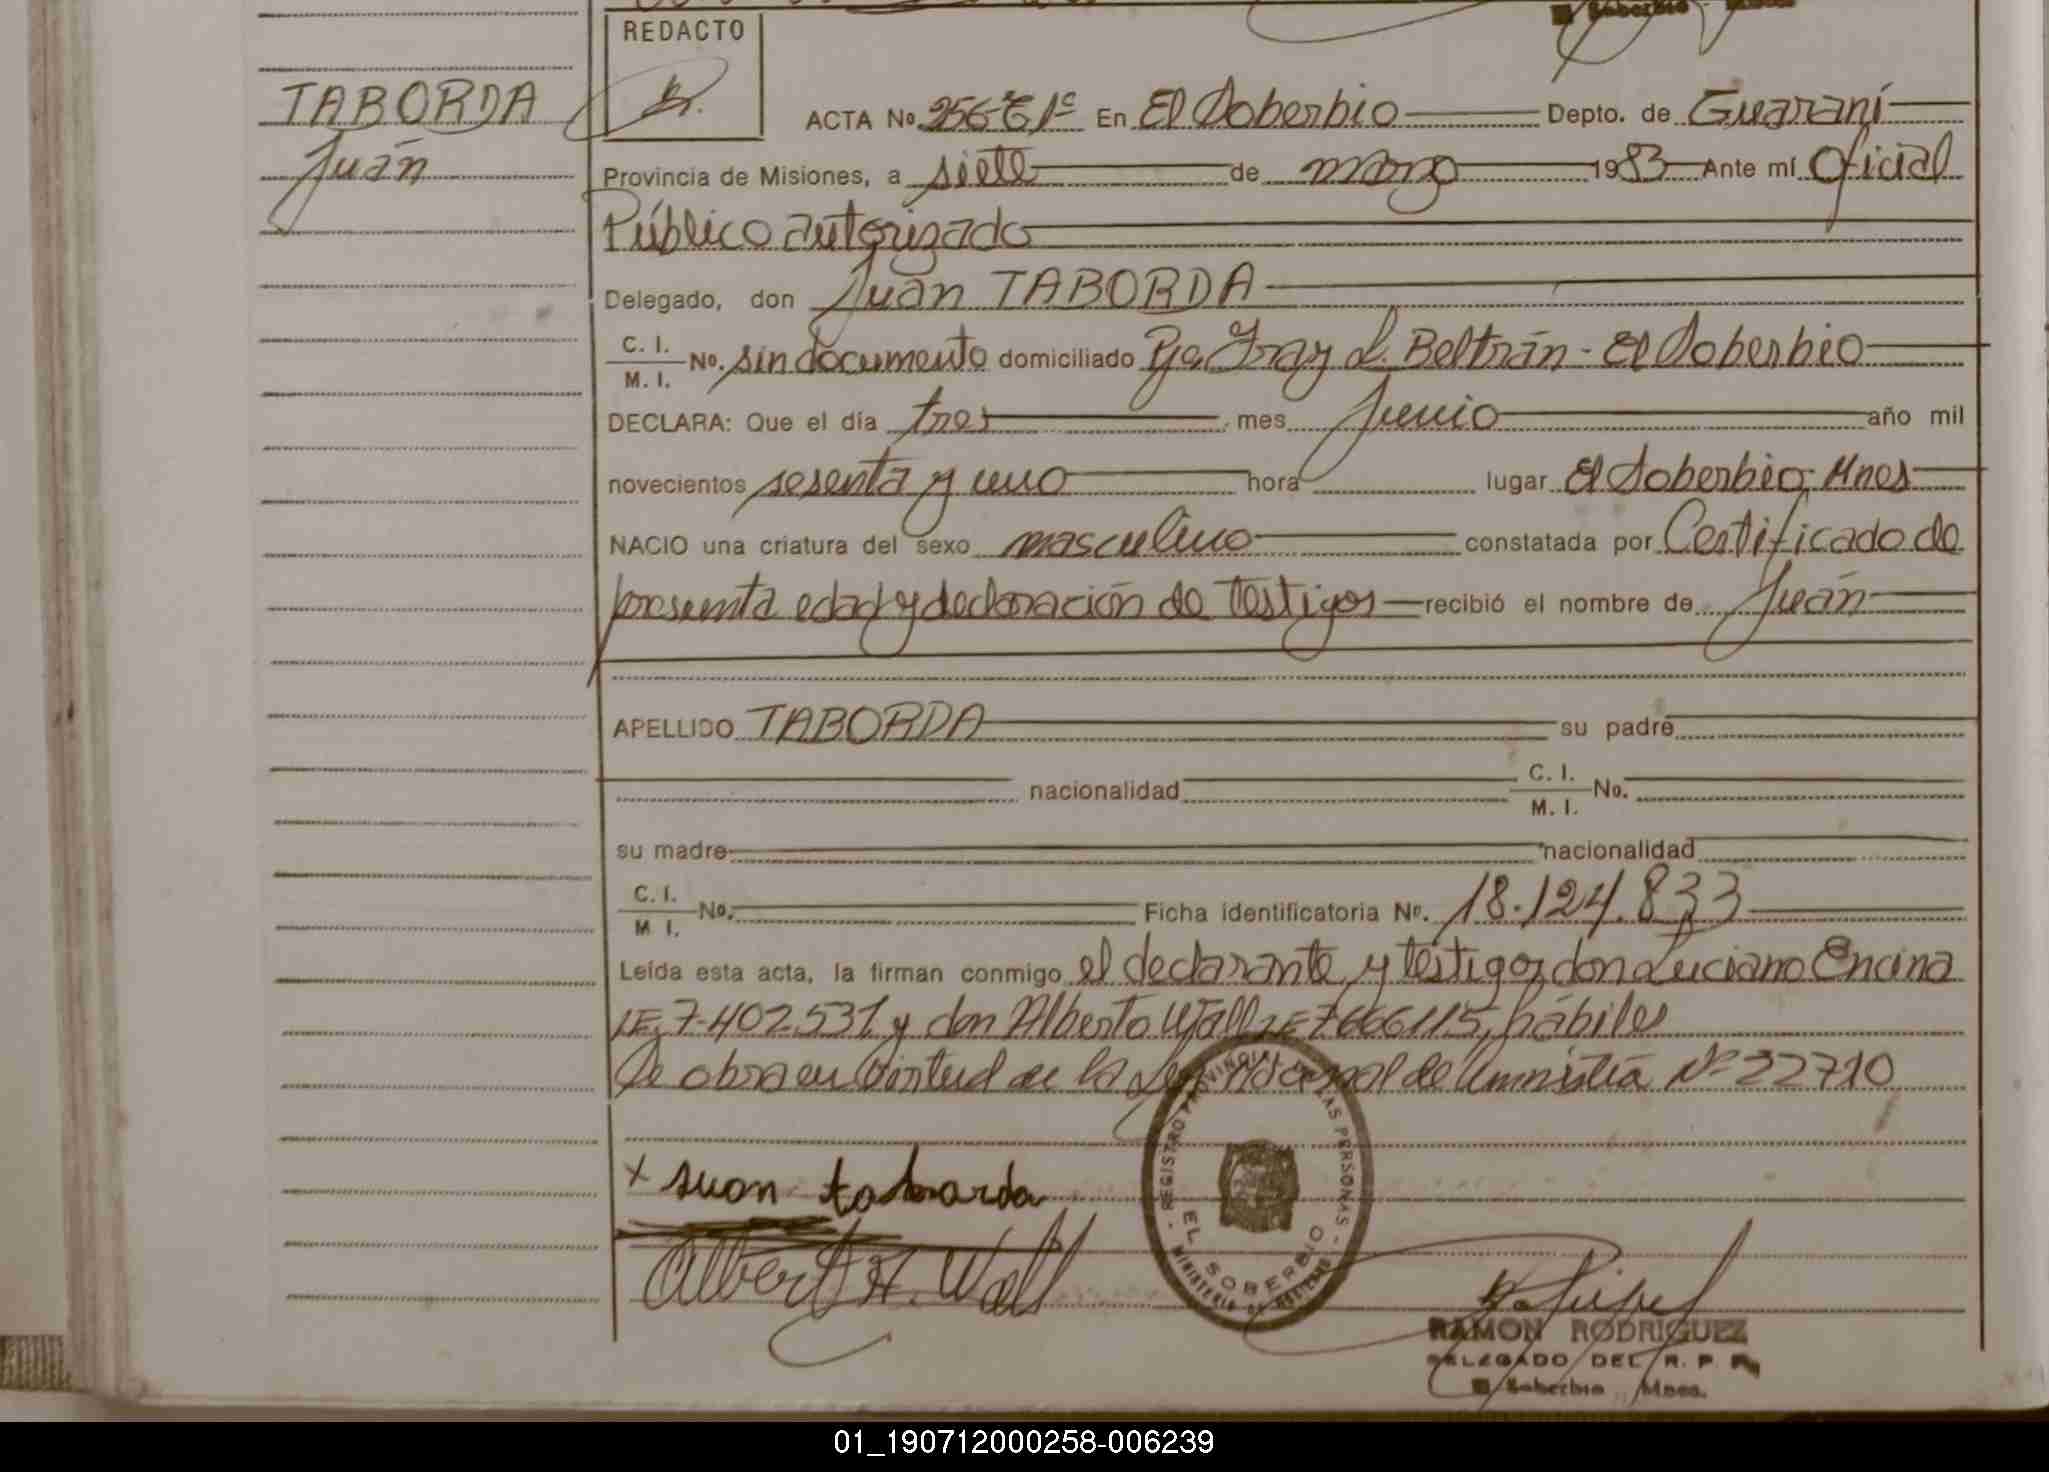 REDACTO
TABORDA
Juán
ACTA No 256 Tº 1º En El Soberbio Depto. de Guaraní
Provincia de Misiones, a siete de marzo 1983 Ante mí Oficial
Público autorizado
Delegado, don Juán TABORDA
C. I.
M. I. No. sin documento domiciliado Pje. Fray L. Beltrán - El Soberbio
DECLARA: Que el día tres mes Junio año mil
novecientos sesenta y uno hora lugar El Soberbio, Mnes
NACIO una criatura del sexo masculino constatada por Certificado de
presunta edad y declaración de testigos recibió el nombre de Juán
APELLIDO TABORDA su padre
nacionalidad C. I. No.
M. I.
su madre nacionalidad
C. I. No. Ficha identificatoria Nº. 18.124.833
M. I.
Leída esta acta, la firman conmigo el declarante y testigos don Luciano Encina
LE, 7.402.531 y don Alberto Wall LE 7666115, hábiles
Se obra en virtud de la Ley Nacional de Amnistía Nº 22710
x Juan taborda
Albert H. Wall
REGISTRO PROVINCIAL DE LAS PERSONAS
EL SOBERBIO
MINISTERIO DE GOBIERNO
RAMON RODRIGUEZ
DELEGADO DEL R. P. P.
El Soberbio Mnes.
01_190712000258-006239